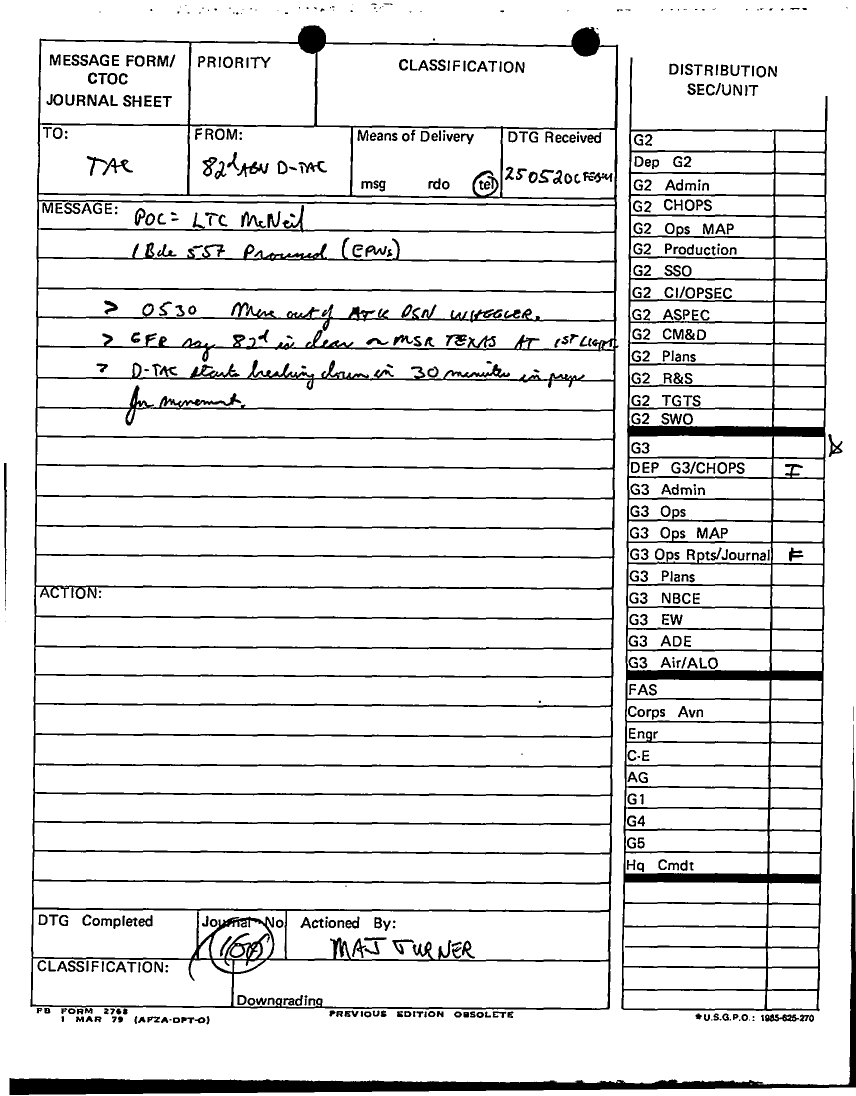 MESSAGE FORM/
CTOC
JOURNAL SHEET
PRIORITY
CLASSIFICATION
TO:
TAC
FROM:
82d ABN D-TAC
Means of Delivery
msg rdo tel
DTG Received
250520C FEB91
MESSAGE: POC = LTC McNeil
1 Bde 557 Processed (EPWs)
> 0530 Move out of ATK PSN WHEELER.
> 6FR say 82d is clear on MSR TEXAS AT 1ST LIGHT
> D-TAC starts breaking down in 30 minutes in prep
for movement.
ACTION:
DTG Completed
Journal No
Actioned By:
MAJ TURNER
CLASSIFICATION:
Downgrading
FB FORM 2768
1 MAR 79 (AFZA-DPT-O)
PREVIOUS EDITION OBSOLETE
DISTRIBUTION
SEC/UNIT
G2
Dep G2
G2 Admin
G2 CHOPS
G2 Ops MAP
G2 Production
G2 SSO
G2 CI/OPSEC
G2 ASPEC
G2 CM&D
G2 Plans
G2 R&S
G2 TGTS
G2 SWO
G3
DEP G3/CHOPS I
G3 Admin
G3 Ops
G3 Ops MAP
G3 Ops Rpts/Journal F
G3 Plans
G3 NBCE
G3 EW
G3 ADE
G3 Air/ALO
FAS
Corps Avn
Engr
C-E
AG
G1
G4
G5
Hq Cmdt
*U.S.G.P.O.: 1985-625-270